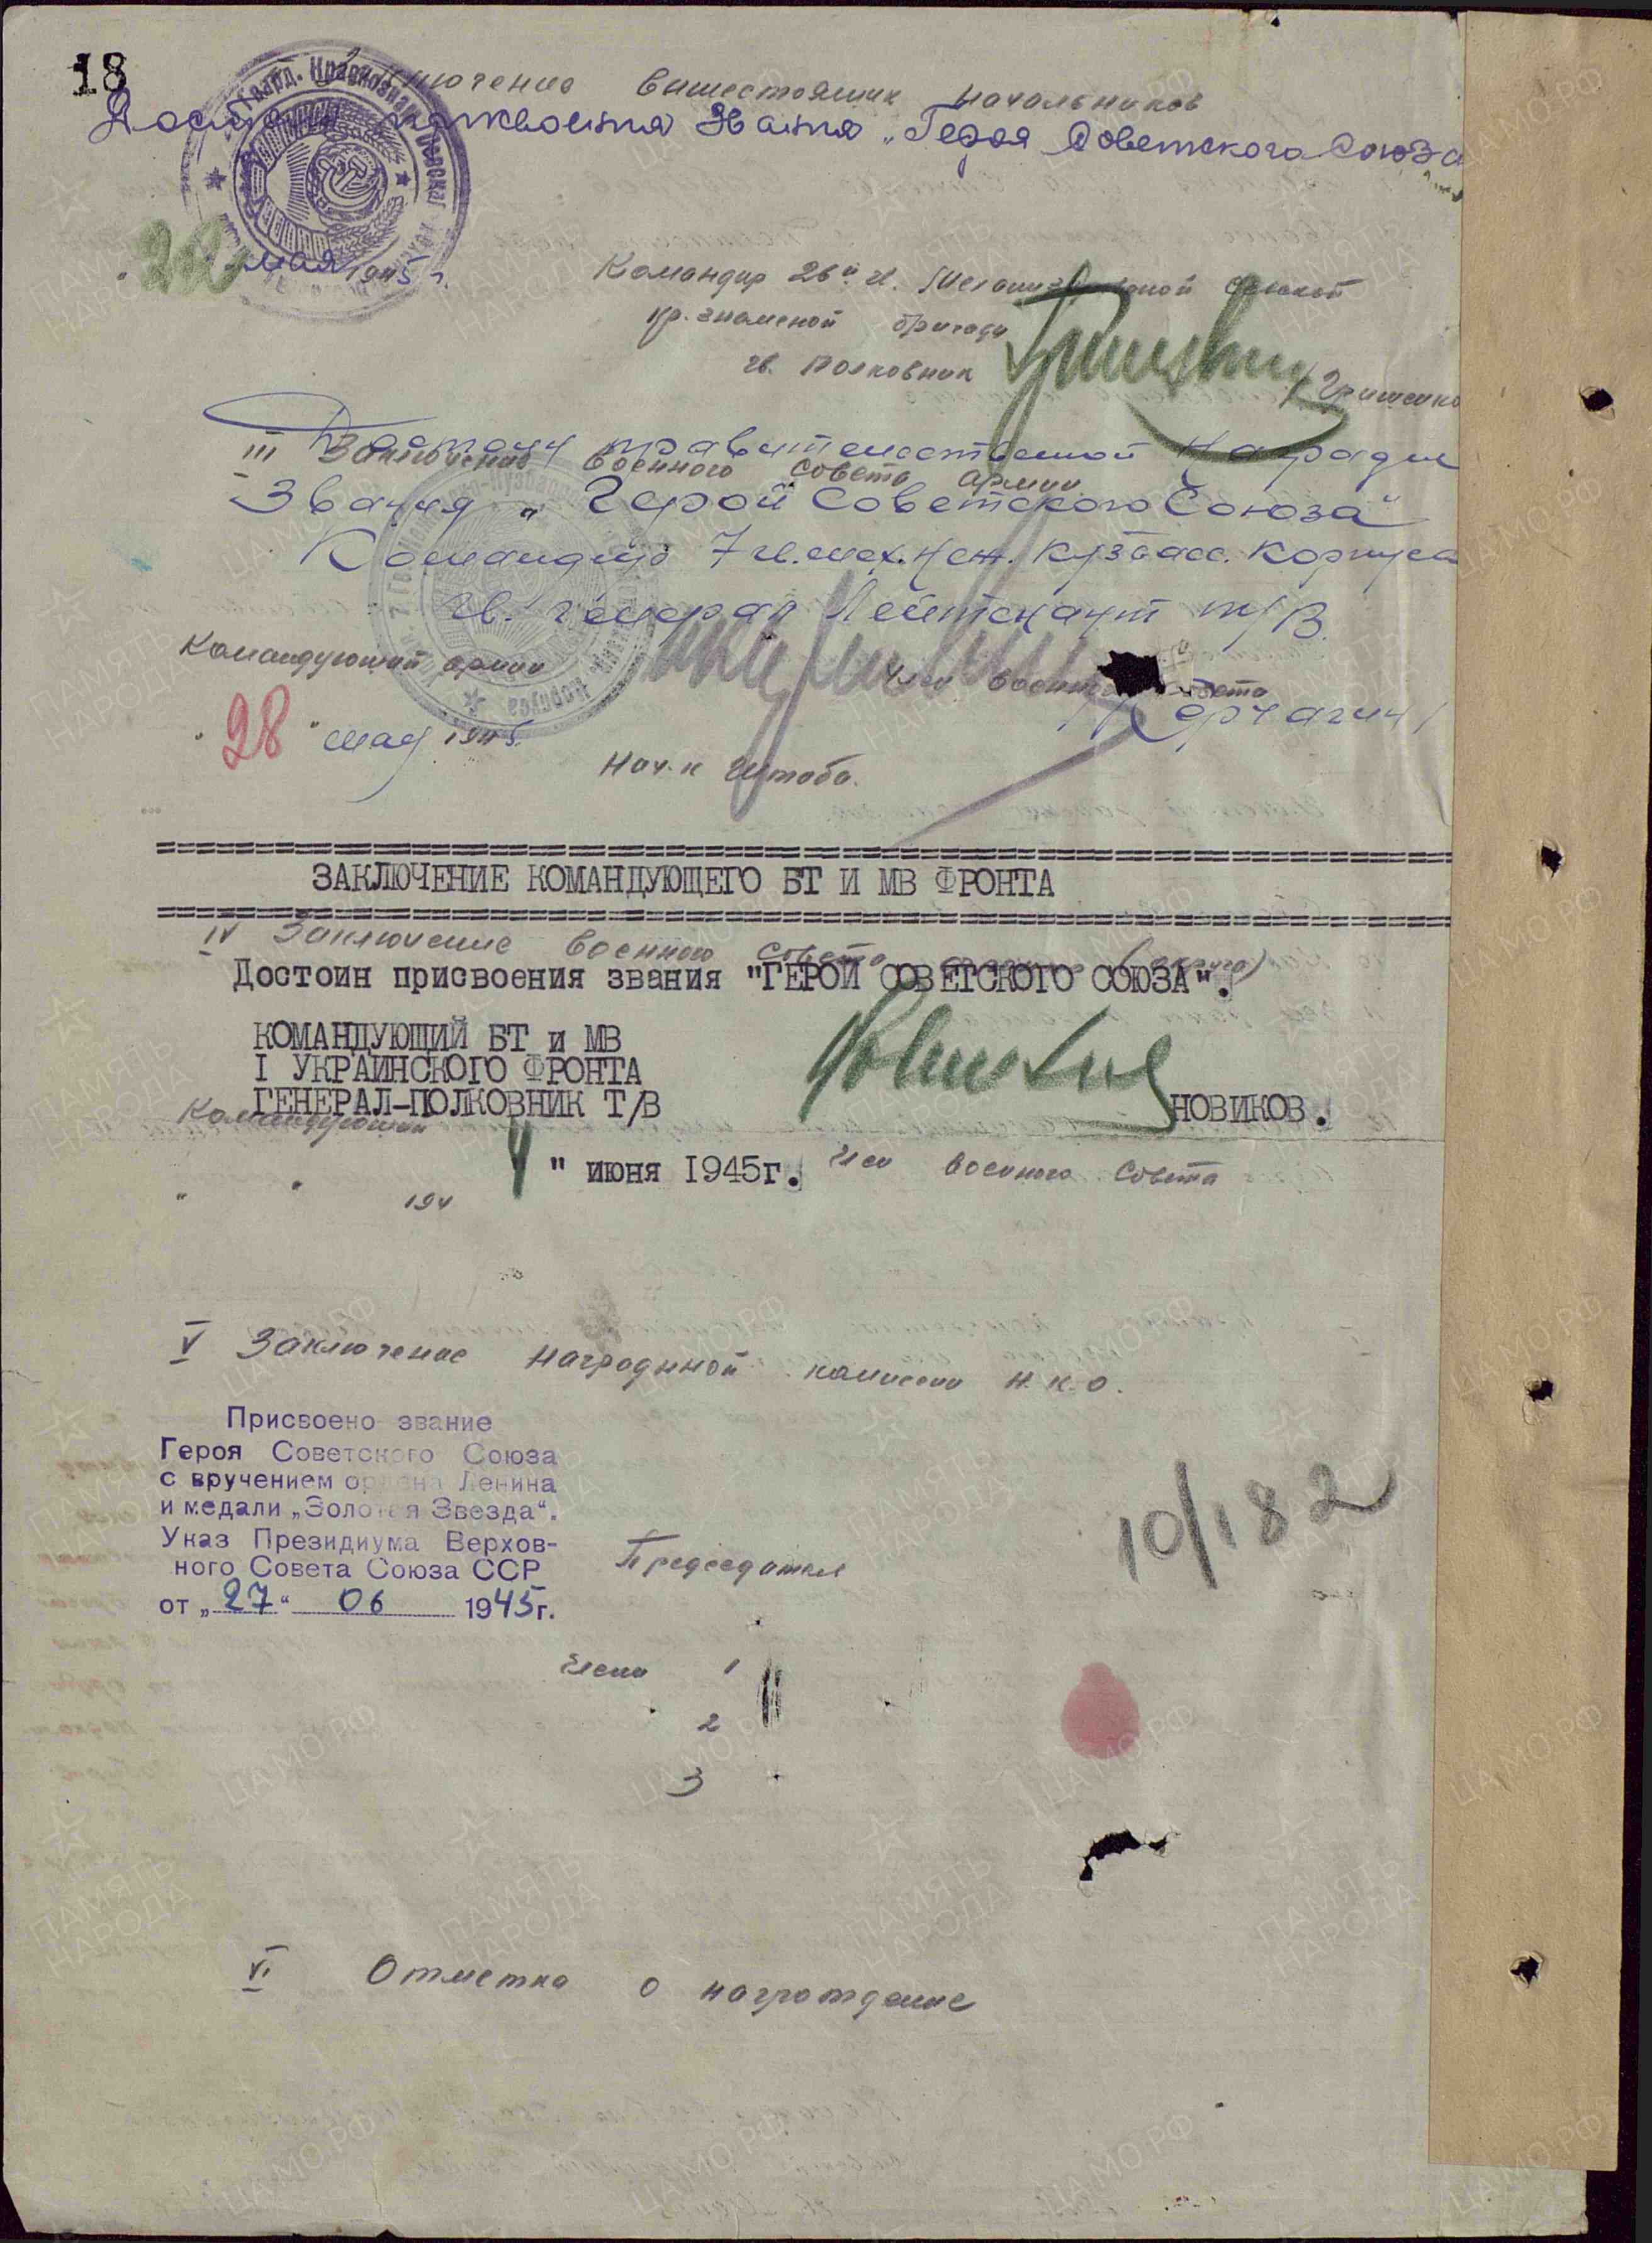 18
Заключение вышестоящих начальников
Достоин присвоения Звания „Героя Советского Союза
мая 1945 г.
Командир 26й гв. Механизированной
кр. знаменой бригады
гв. полковник
/Гриценко
Достоин правительственной награды
III Заключение Военного Совета Армии
Звания „Герой Советского Союза"
Командир 7 гв. мех. Неж. Кузбасс. корпуса
гв. генерал Лейтенант т/в.
Командующий армии
Член военного совета
/Корчагин/
"28" мая 1945.
Нач-к Штаба.
ЗАКЛЮЧЕНИЕ КОМАНДУЮЩЕГО БТ И МВ ФРОНТА
IV Заключение Военного Совета (округа)
Достоин присвоения звания "ГЕРОЙ СОВЕТСКОГО СОЮЗА".
КОМАНДУЮЩИЙ БТ и МВ
I УКРАИНСКОГО ФРОНТА
ГЕНЕРАЛ-ПОЛКОВНИК Т/В
НОВИКОВ.
Командующий
4 " июня 1945г.
Член Военного Совета
" " 194
V Заключение наградной комиссии Н.К.О.
Присвоено звание
Героя Советского Союза
с вручением ордена Ленина
и медали „Золотая Звезда“.
Указ Президиума Верхов-
ного Совета Союза ССР
от „27“ 06 1945г.
10/182
Председатель
Члены 1
2
3
VI Отметка о награждение